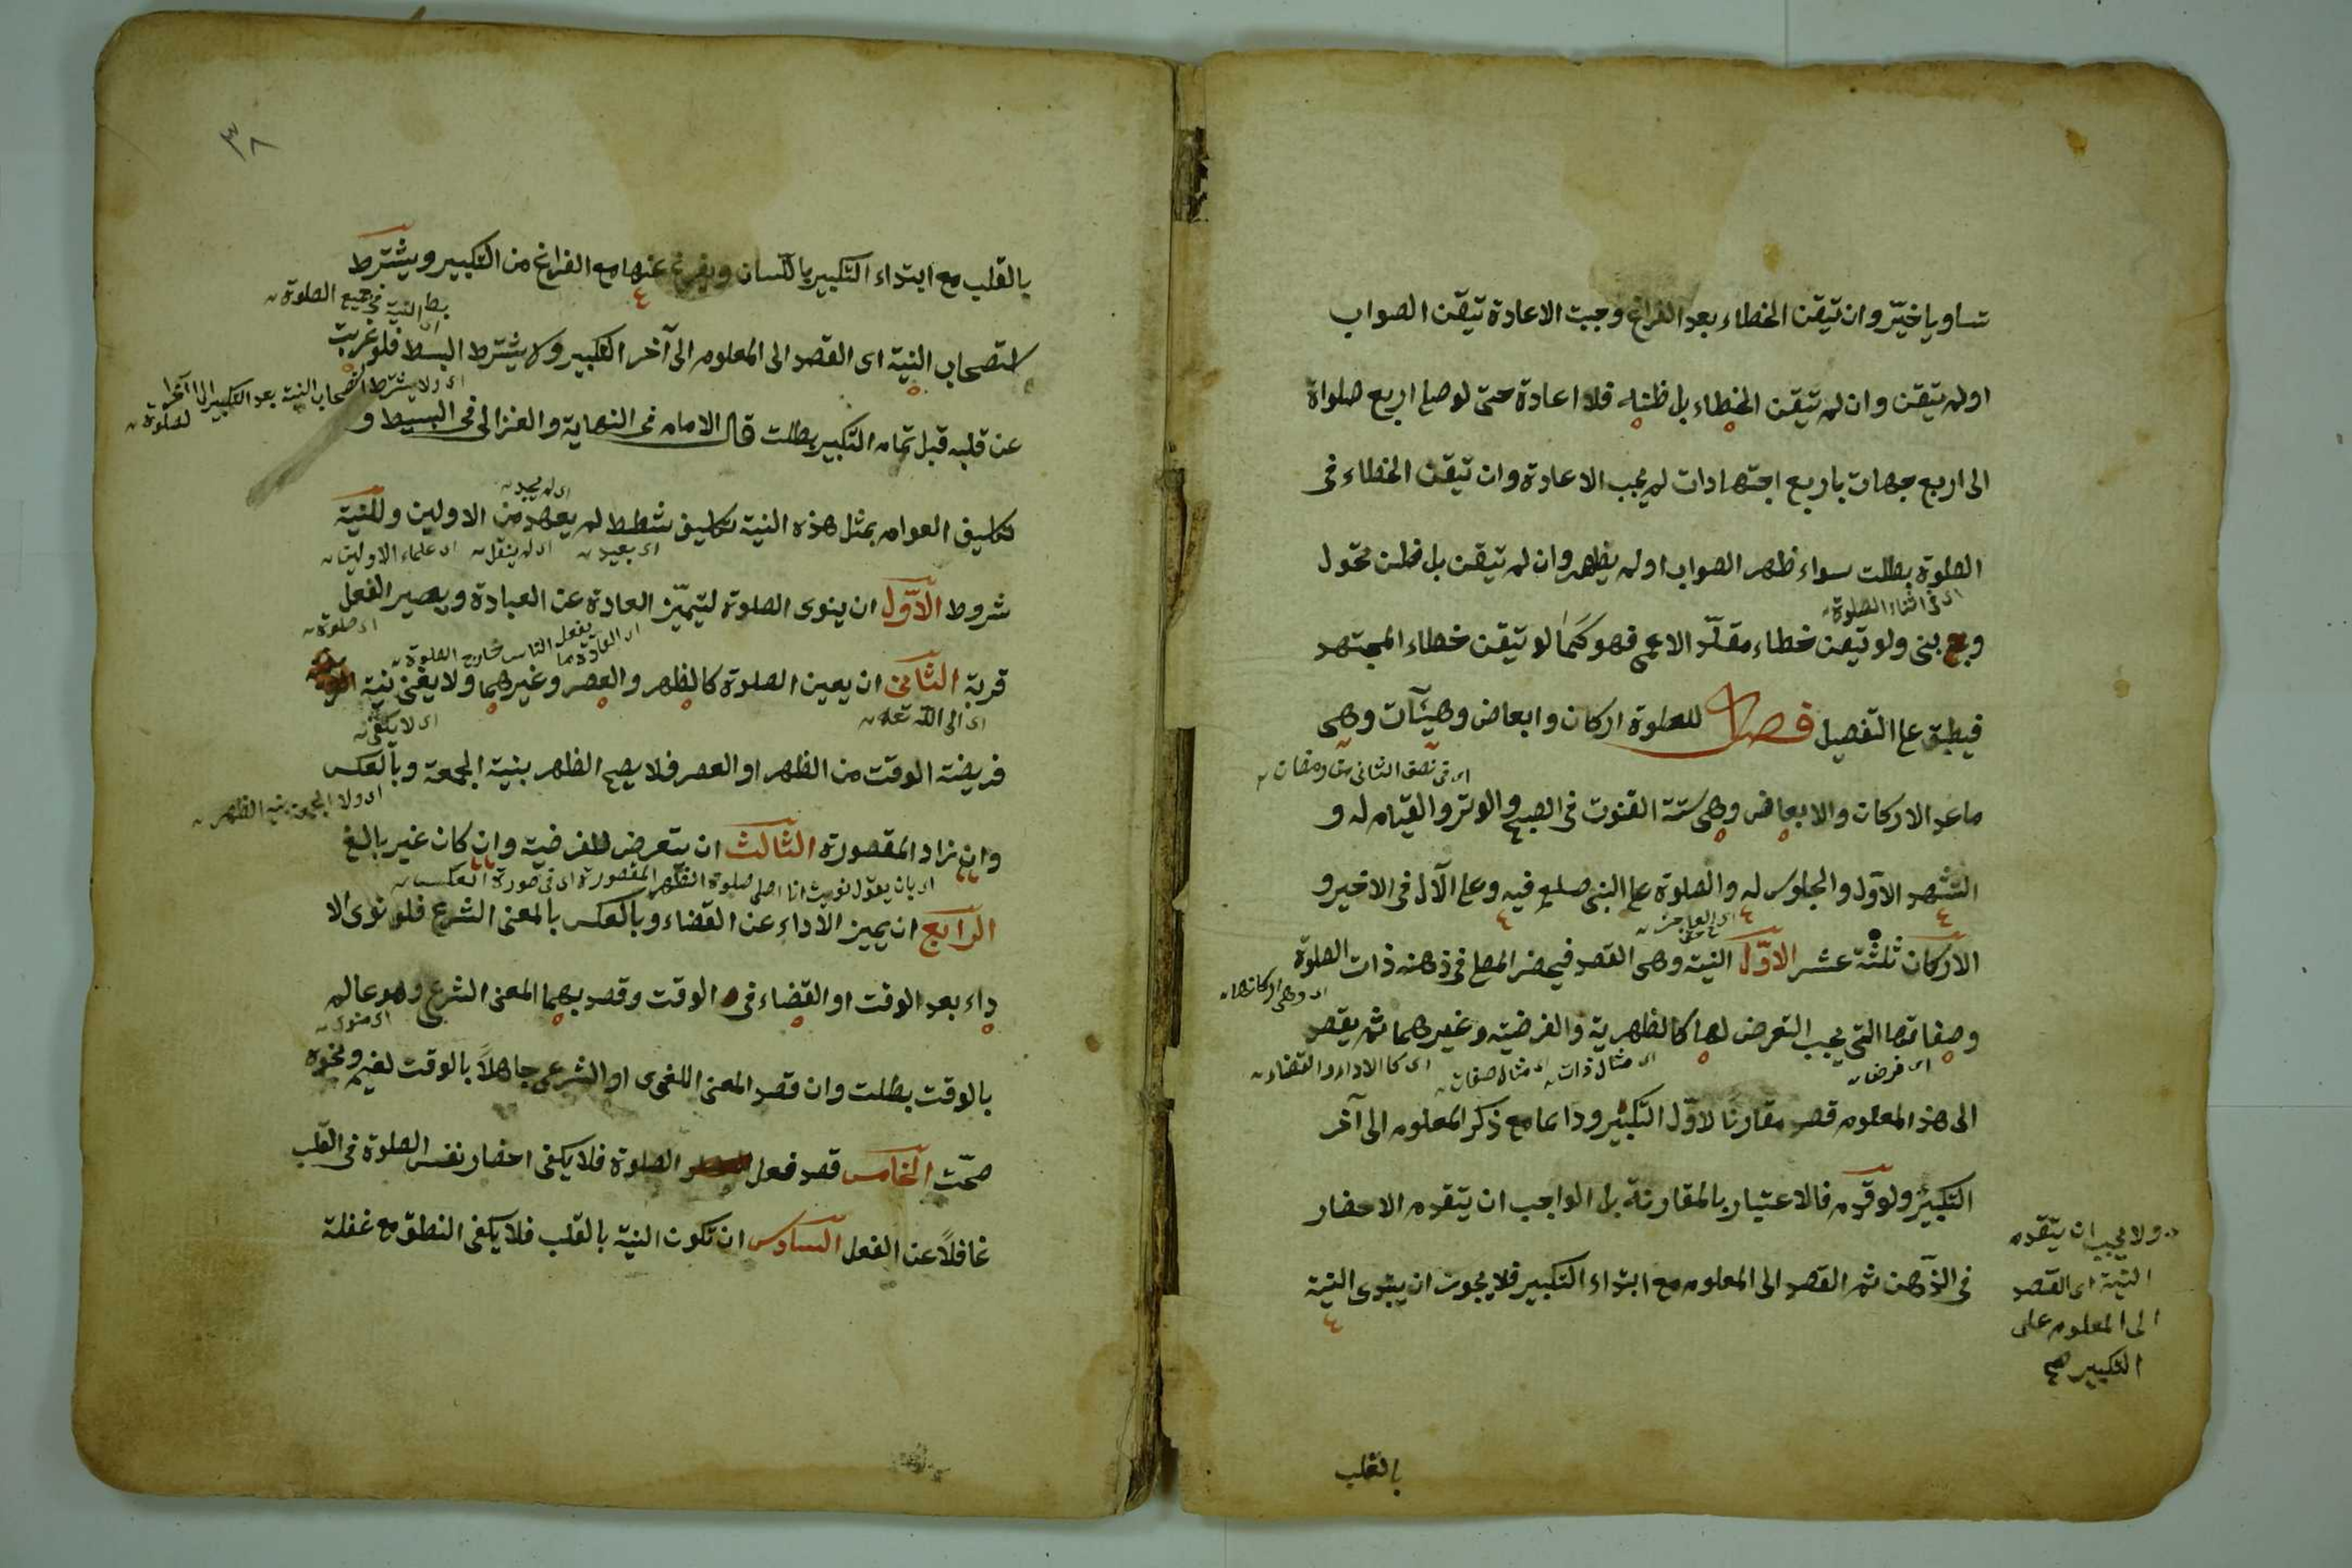 تساويا خيّر وان تيقن الخطاء بعد الفراغ وجبت الاعادة تيقن الصواب
اولم تيقن وان لم تيقن الخطاء بل ظنه فلا اعادة حتى لو صلى اربع صلواة
الى اربع جهات باربع اجتهادات لم يجب الاعادة وان تيقن الخطاء فى
الصلوة بطلت سواء ظهر الصواب اولم يظهر وان لم تيقن بل ظن تحول
اى فى اثناء الصلوة
وبنى ولو تيقن خطاء مقلّد الاعمى فهو كما لو تيقن خطاء المجتهد
فيطبق على التفصيل فصل للصلوة اركان وابعاض وهيئآت وهى
اى فى نصف الثانى من رمضان
ماعد الاركان والابعاض وهى ستة القنوت فى الصبح والوتر والقيام له و
التشهد الاوّل والجلوس له والصلوة على النبى صلعم فيه وعلى الآل فى الاخير و
الاركان ثلثة عشر الاوّل النية وهى القصد فيحضر المصلى فى ذهنه ذات الصلوة
اى وهى اركانها
وصفاتها التى يجب التعرض لها كالظهرية والفرضية وغيرهما ثم يقصد
اى فرض اى مثال ذات اى مثال صفات اى كا الاداء والقضاء
الى هذ المعلوم قصد مقارنًا لاوّل التكبير ودائما مع ذكر المعلوم الى آخر
التكبير ولو قدم فالاعتبار بالمقارنة بل الواجب ان يتقدم الاحضار
فى الذّهن ثم القصد الى المعلوم مع ابتداء التكبير فلا يجوز ان يبتدى النية
ولا يجب ان يتقدم
النية اى القصد
الى المعلوم على
التكبير صح
بالقلب
٣٨
بالقلب مع ابتداء التكبير باللّسان ويفرغ عنها مع الفراغ من التكبير ويشترط
بسط النية فى جميع الصلوة
استصحاب النية اى القصد الى المعلوم الى آخر التكبير ولا يشترط البسط فلو غربت
اى ولا يشترط استصحاب النية بعد التكبير الى آخر
الصلوة
عن قلبه قبل تمام التكبير بطلت قال الامام فى النهاية والغزالى فى البسيط و
اى لم يجد
تكليف العوام بمثل هذه النية تكليف شطط لم يعهد من الاولين وللنية
اى بعيد اى لم ينقل اى علماء الاولين
شروط الاوّل ان ينوى الصلوة ليتميّز العادة عن العبادة ويصير الفعل
اى العادة ما يفعل الناس خارج الصلوة
اى صلوة
قربة الثانى ان يعين الصلوة كالظهر والعصر وغيرهما ولا يغنى نية
اى الى اللّه تعالى
اى لا يكفى
فريضة الوقت من الظهر او العصر فلا يصح الظهر بنية الجمعة وبالعكس
اى ولا الجمعة بنية الظهر
وان نزاد المقصورة الثالث ان يتعرض للفرضية وان كان غير بالغ
اى بان يقول نويت انا اصلى صلوة الظهر المقصورة اى فى صورة العكس
الرابع ان يميز الاداء عن القضاء وبالعكس بالمعنى الشرع فلو نوى الا
داء بعد الوقت او القضاء فى الوقت وقصد بهما المعنى الشرع وهو عالم
اى منوى
بالوقت بطلت وان قصد المعنى اللغوى او الشرعى جاهلاً بالوقت لغيم ونحوه
صحّت الخامس قصد فعل الصلوة فلا يكفى احضار نفس الصلوة فى القلب
غافلاً عن الفعل السادس ان تكون النية بالقلب فلا يكفى النطق مع غفلة